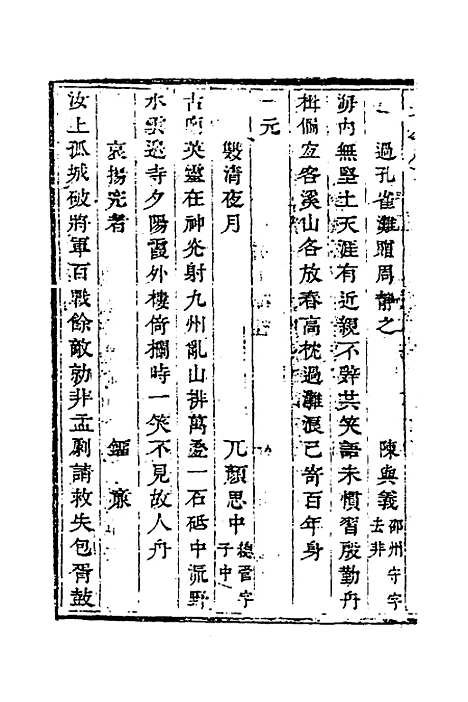 過孔雀灘贈周靜之 陳與義 邵州守字去非
海内無堅土天涯有近親不辭共笑語未慣習殷勤舟
楫偏宜客溪山各放春高枕過灘浪已寄百年身
元
清夜月 兀顏思中 總管字子中
古廟英靈在神光射九州亂山排萬疊一石砥中流野
水雲邊寺夕陽霞外樓倚欄時一笑不見故人舟
哀楊完者
汝上孤城破將軍百戰餘敵勍非孟剛請救失包胥鼓